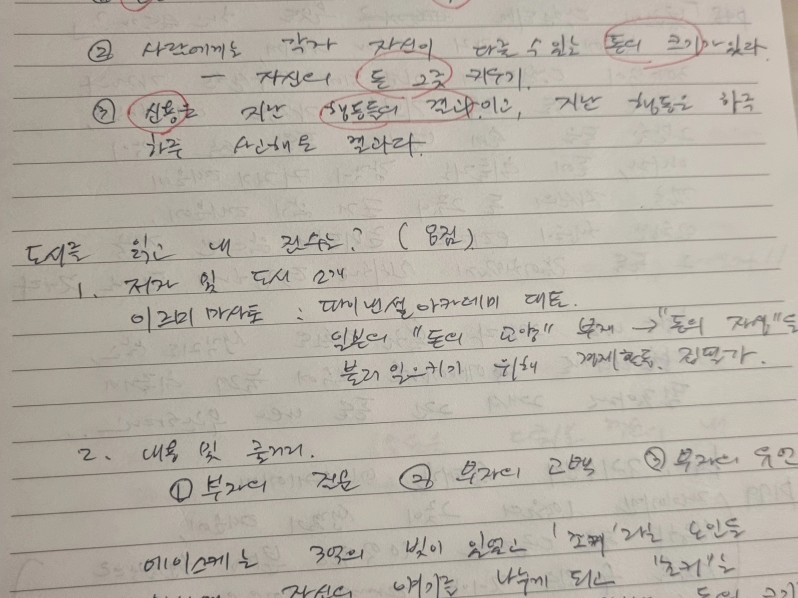 ② 사람에게는 각자 자신이 다룰 수 있는 돈의 크기가 있다.
— 자신의 돈 그릇 키우기.
③ 신용은 지난 행동들의 결과이고, 지난 행동은 하루
하루 사고해온 결과다.
도서를 읽고 내 점수는? ( 점)
1. 저자 및 도서 소개
이즈미 마사토 : 파이낸셜아카데미 대표.
일본의 "돈의 교양" 부재 → "돈의 "를
불러 일으키기 위해 경제활동, 집필가.
2. 내용 및 줄거리.
① 부자의 질문 ② 부자의 고백 ③ 부자의 유언
에이스케는 3억의 빚이 있었고 '조커'라는 노인을
자신의 얘기를 나누게 되고 '조커'는
돈의 크기